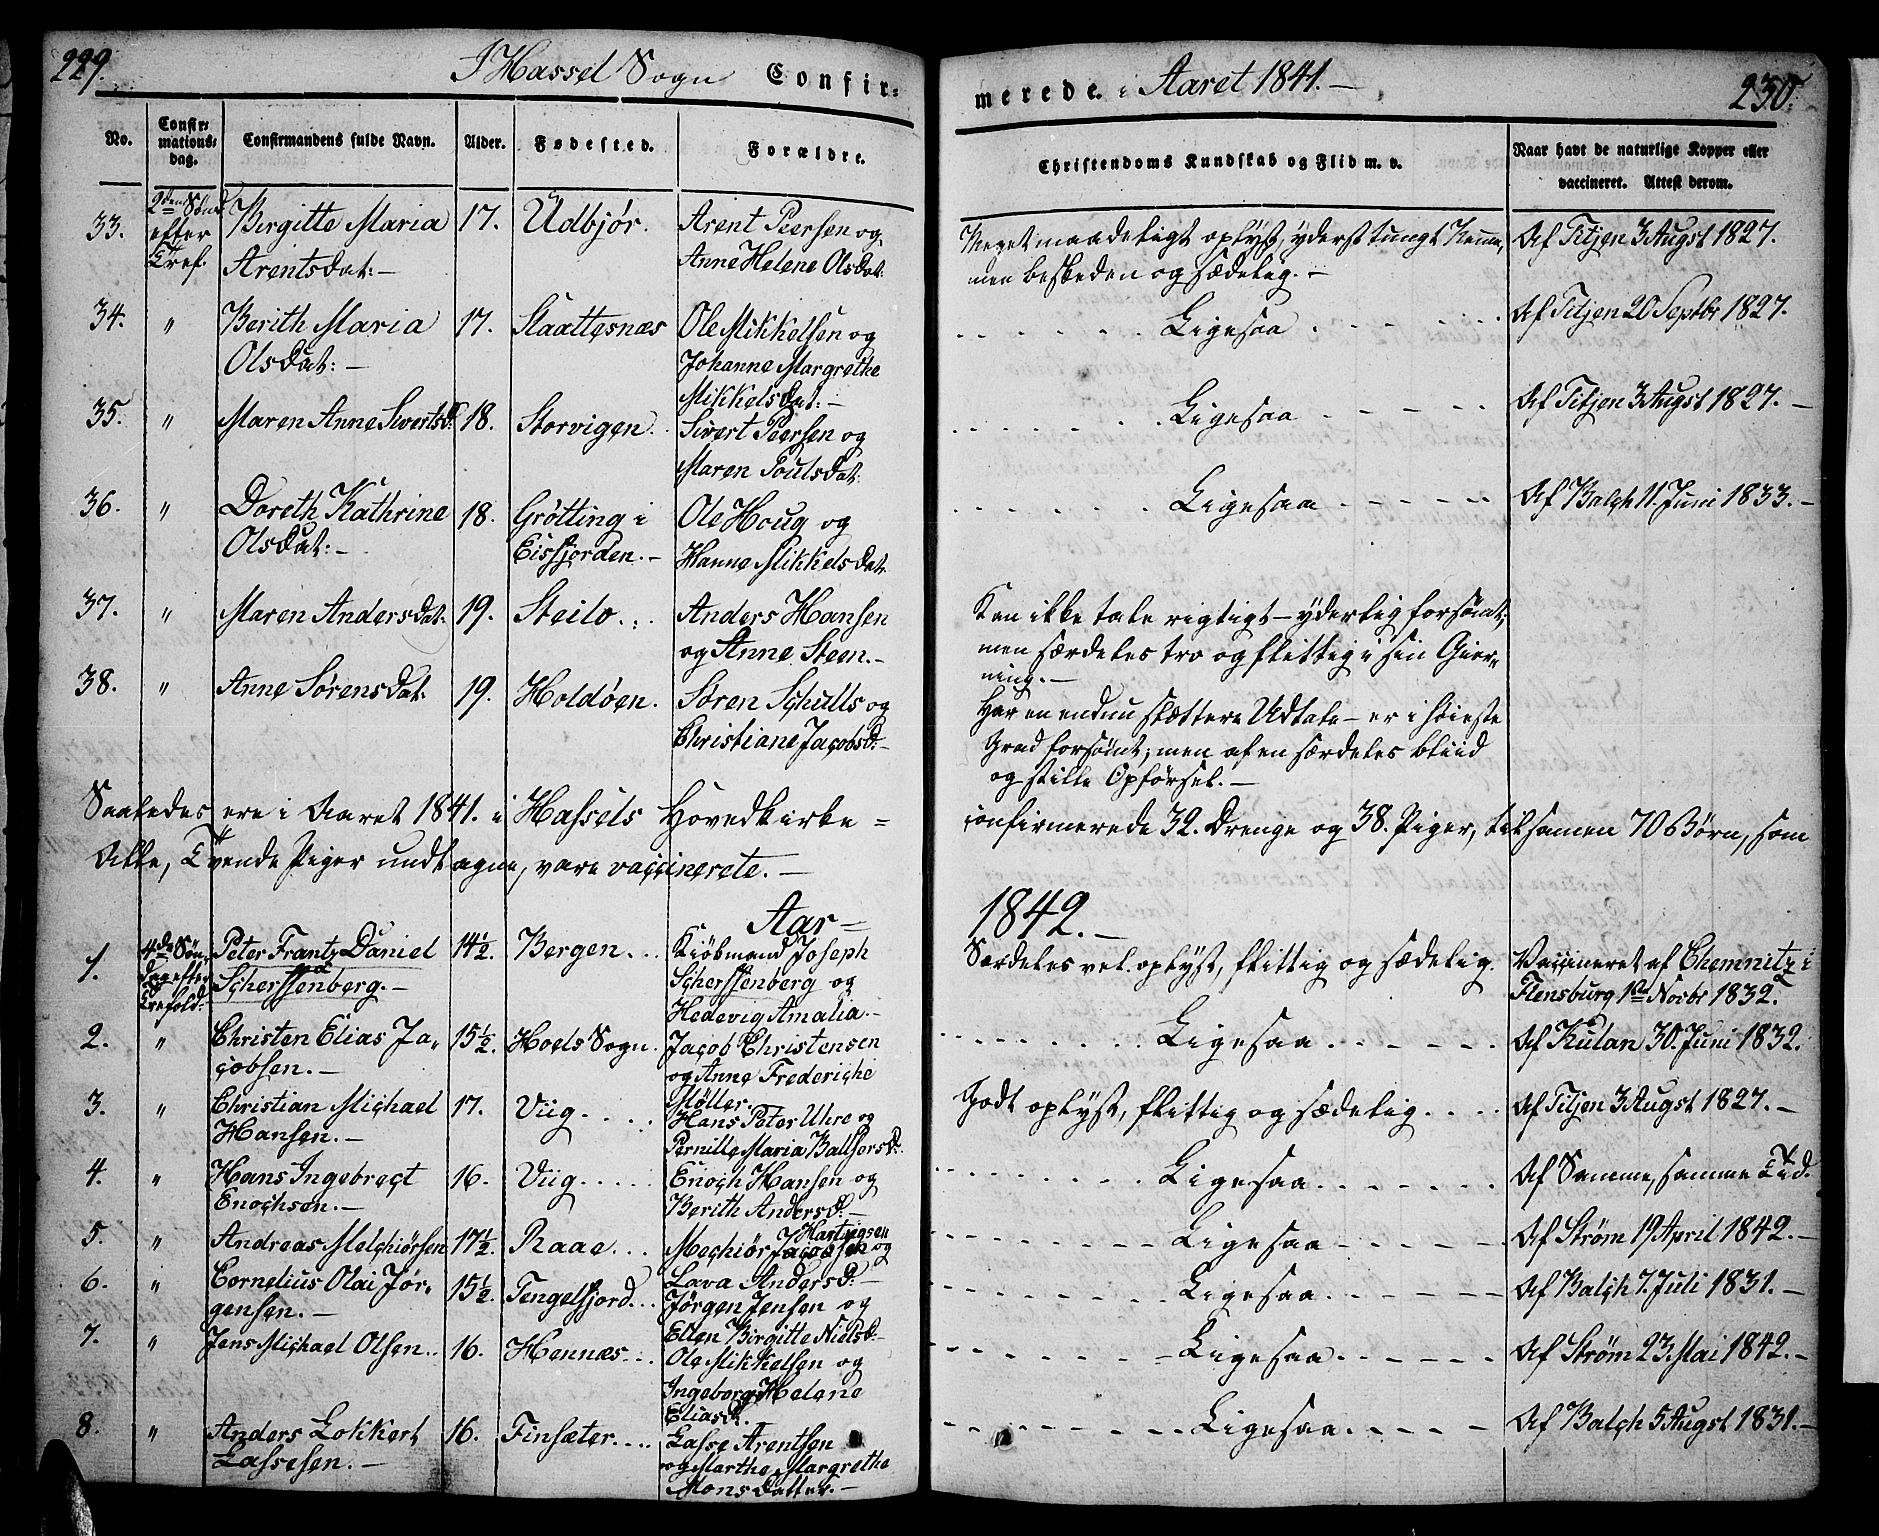 229.
I Hassel Sogn Confir-
merede i Aaret 1841.-
230.
No.
Confir-
mations-
dag.
Confirmandens fulde Navn.
Alder.
Fødested.
Forældre.
Christendoms Kundskab og Flid m. v.
Naar havt de naturlige Kopper eller
vaccineret. Attest derom.
33.
2den Sønd
efter
Tref.
Birgitte Maria
Arentsdat:-
17.
Udbjør.
Arent Peersen og
Anne Helene Olsdat:
Meget maadeligt oplyst, yderst tungt Nemme,
men beskeden og sædelig.-
Af Titjen 3 Augst 1827.
34.
"
Berith Maria
Olsdat:-
17.
Skaattesnæs
Ole Mikkelsen og
Johanne Margrethe
Mikkelsdat:-
Ligesaa
Af Titjen 20 Septbr 1827.
35.
"
Maren Anne Sivertsd:
18.
Storvigen.
Sivert Peersen og
Maren Poulsdat:
Ligesaa
Af Titjen 3 Augst 1827.-
36.
"
Doreth Kathrine
Olsdat:-
18.
Grøtting i
Eisfjorden.-
Ole Houg og
Hanne Mikkelsdat.
Ligesaa
Af Balch 11. Juni 1833.-
37.
"
Maren Andersdat:
19.
Steilo...
Anders Hansen
og Anne Steen.-
Kan ikke tale rigtigt - yderlig forsømt,
men særdeles tro og flittig i sin Gjer-
ning.-
38.
"
Anne Sørensdat:
19.
Holdøen.
Søren Schults og
Christiane Jacobsd:-
Har en endnu slettere Udtale - er i høieste
Grad forsømt; men af en særdeles bliid
og stille Opførsel.-
Saaledes ere i Aaret 1841. i Hassels Hovedkirke =
confirmerede 32. Drenge og 38. Piger, tilsamen 70 Børn, som
Alle, Tvende Piger undtagne, vare vaccinerete.-
Aar-
1842.-
1.
4de Søn-
dag efter
Trefold:
Peter Frantz Daniel
Scherffenberg.-
14½
Bergen...
Kiøbmand Joseph
Scherffenberg og
Hedevig Amalia.-
Særdeles vel oplyst, flittig og sædelig.
Vaccineret af Chemnitz i
Flensburg 1ste Novbr 1832.
2.
"
Christen Elias Ja-
cobsen.-
15½.
Hoels Sogn.
Jacob Christensen
og Anne Frederiche
Møller.
Ligesaa
Af Kulan 30. Juni 1832.
3.
"
Christian Michael
Hansen.-
17.
Viig....
Hans Peter Uhre og
Pernille Maria Balthersd:
Godt oplyst, flittig og sædelig....
Af Titjen 3 Augst 1827.-
4.
"
Hans Ingebrect
Enochsen.-
16.
Viig.....
Enoch Hansen og
Berith Andersd:-
Ligesaa
Af Samme, samme Tid.
5.
"
Andreas Melchiørsen
17½
Raae...
Hartvigsen
Mechiør Jacobsen og
Lava Andersd:-
Ligesaa
Af Strøm 19 April 1842.-
6.
"
Cornelius Olai Jør-
gensen.-
15½.
Tengelfjord...
Jørgen Jensen og
Ellen Birgitte Nielsd:-
Ligesaa
Af Balch 7. Juli 1831.-
7.
"
Jens Michael Olsen..
16.
Hennæs...
Ole Mikkelsen og
Ingeborg Helene
Eliasd.
Ligesaa
Af Strøm 23 Mai 1842.-
8.
"
Anders Lokkert
Lassesen.-
16.
Finsæter....
Lasse Arentsen
og Marthe Margrethe
Mons Datter.-
Ligesaa
Af Balch 5 Augst 1831.-